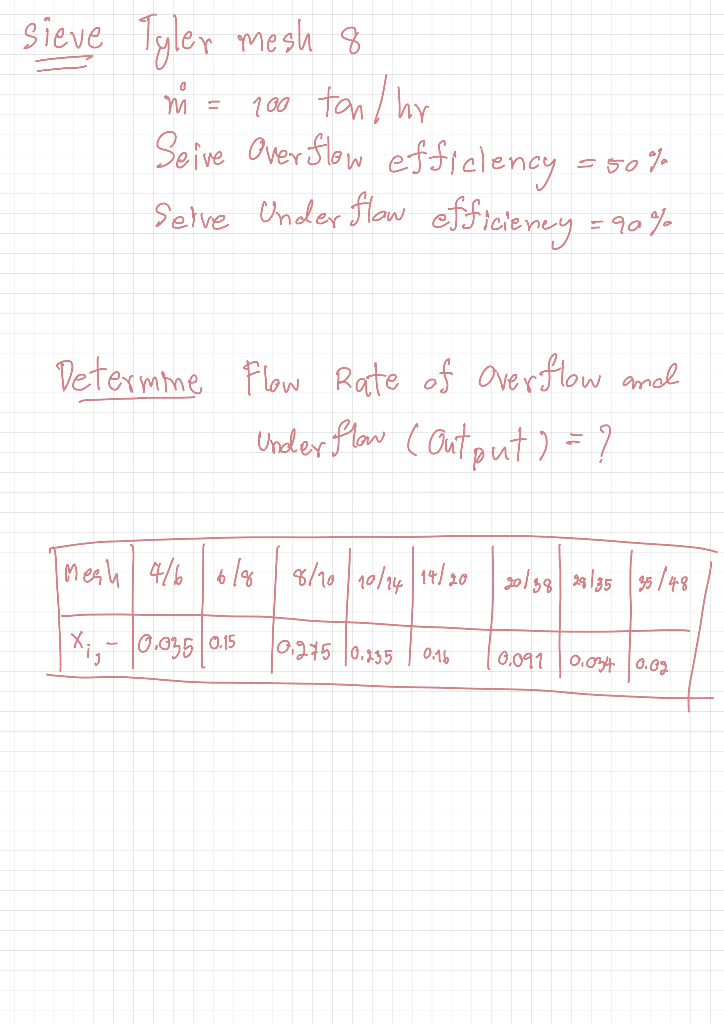 sieve Tyler mesh 8
ṁ = 100 ton/hr
Seive Overflow efficiency = 50%
Seive Underflow efficiency = 90%
Determine Flow Rate of Overflow and
Underflow (Output) = ?
Mesh 4/6 6/8 8/10 10/14 14/20 20/38 28/35 35/48
Xi, - 0.035 0.15 0.275 0.235 0.16 0.091 0.034 0.02